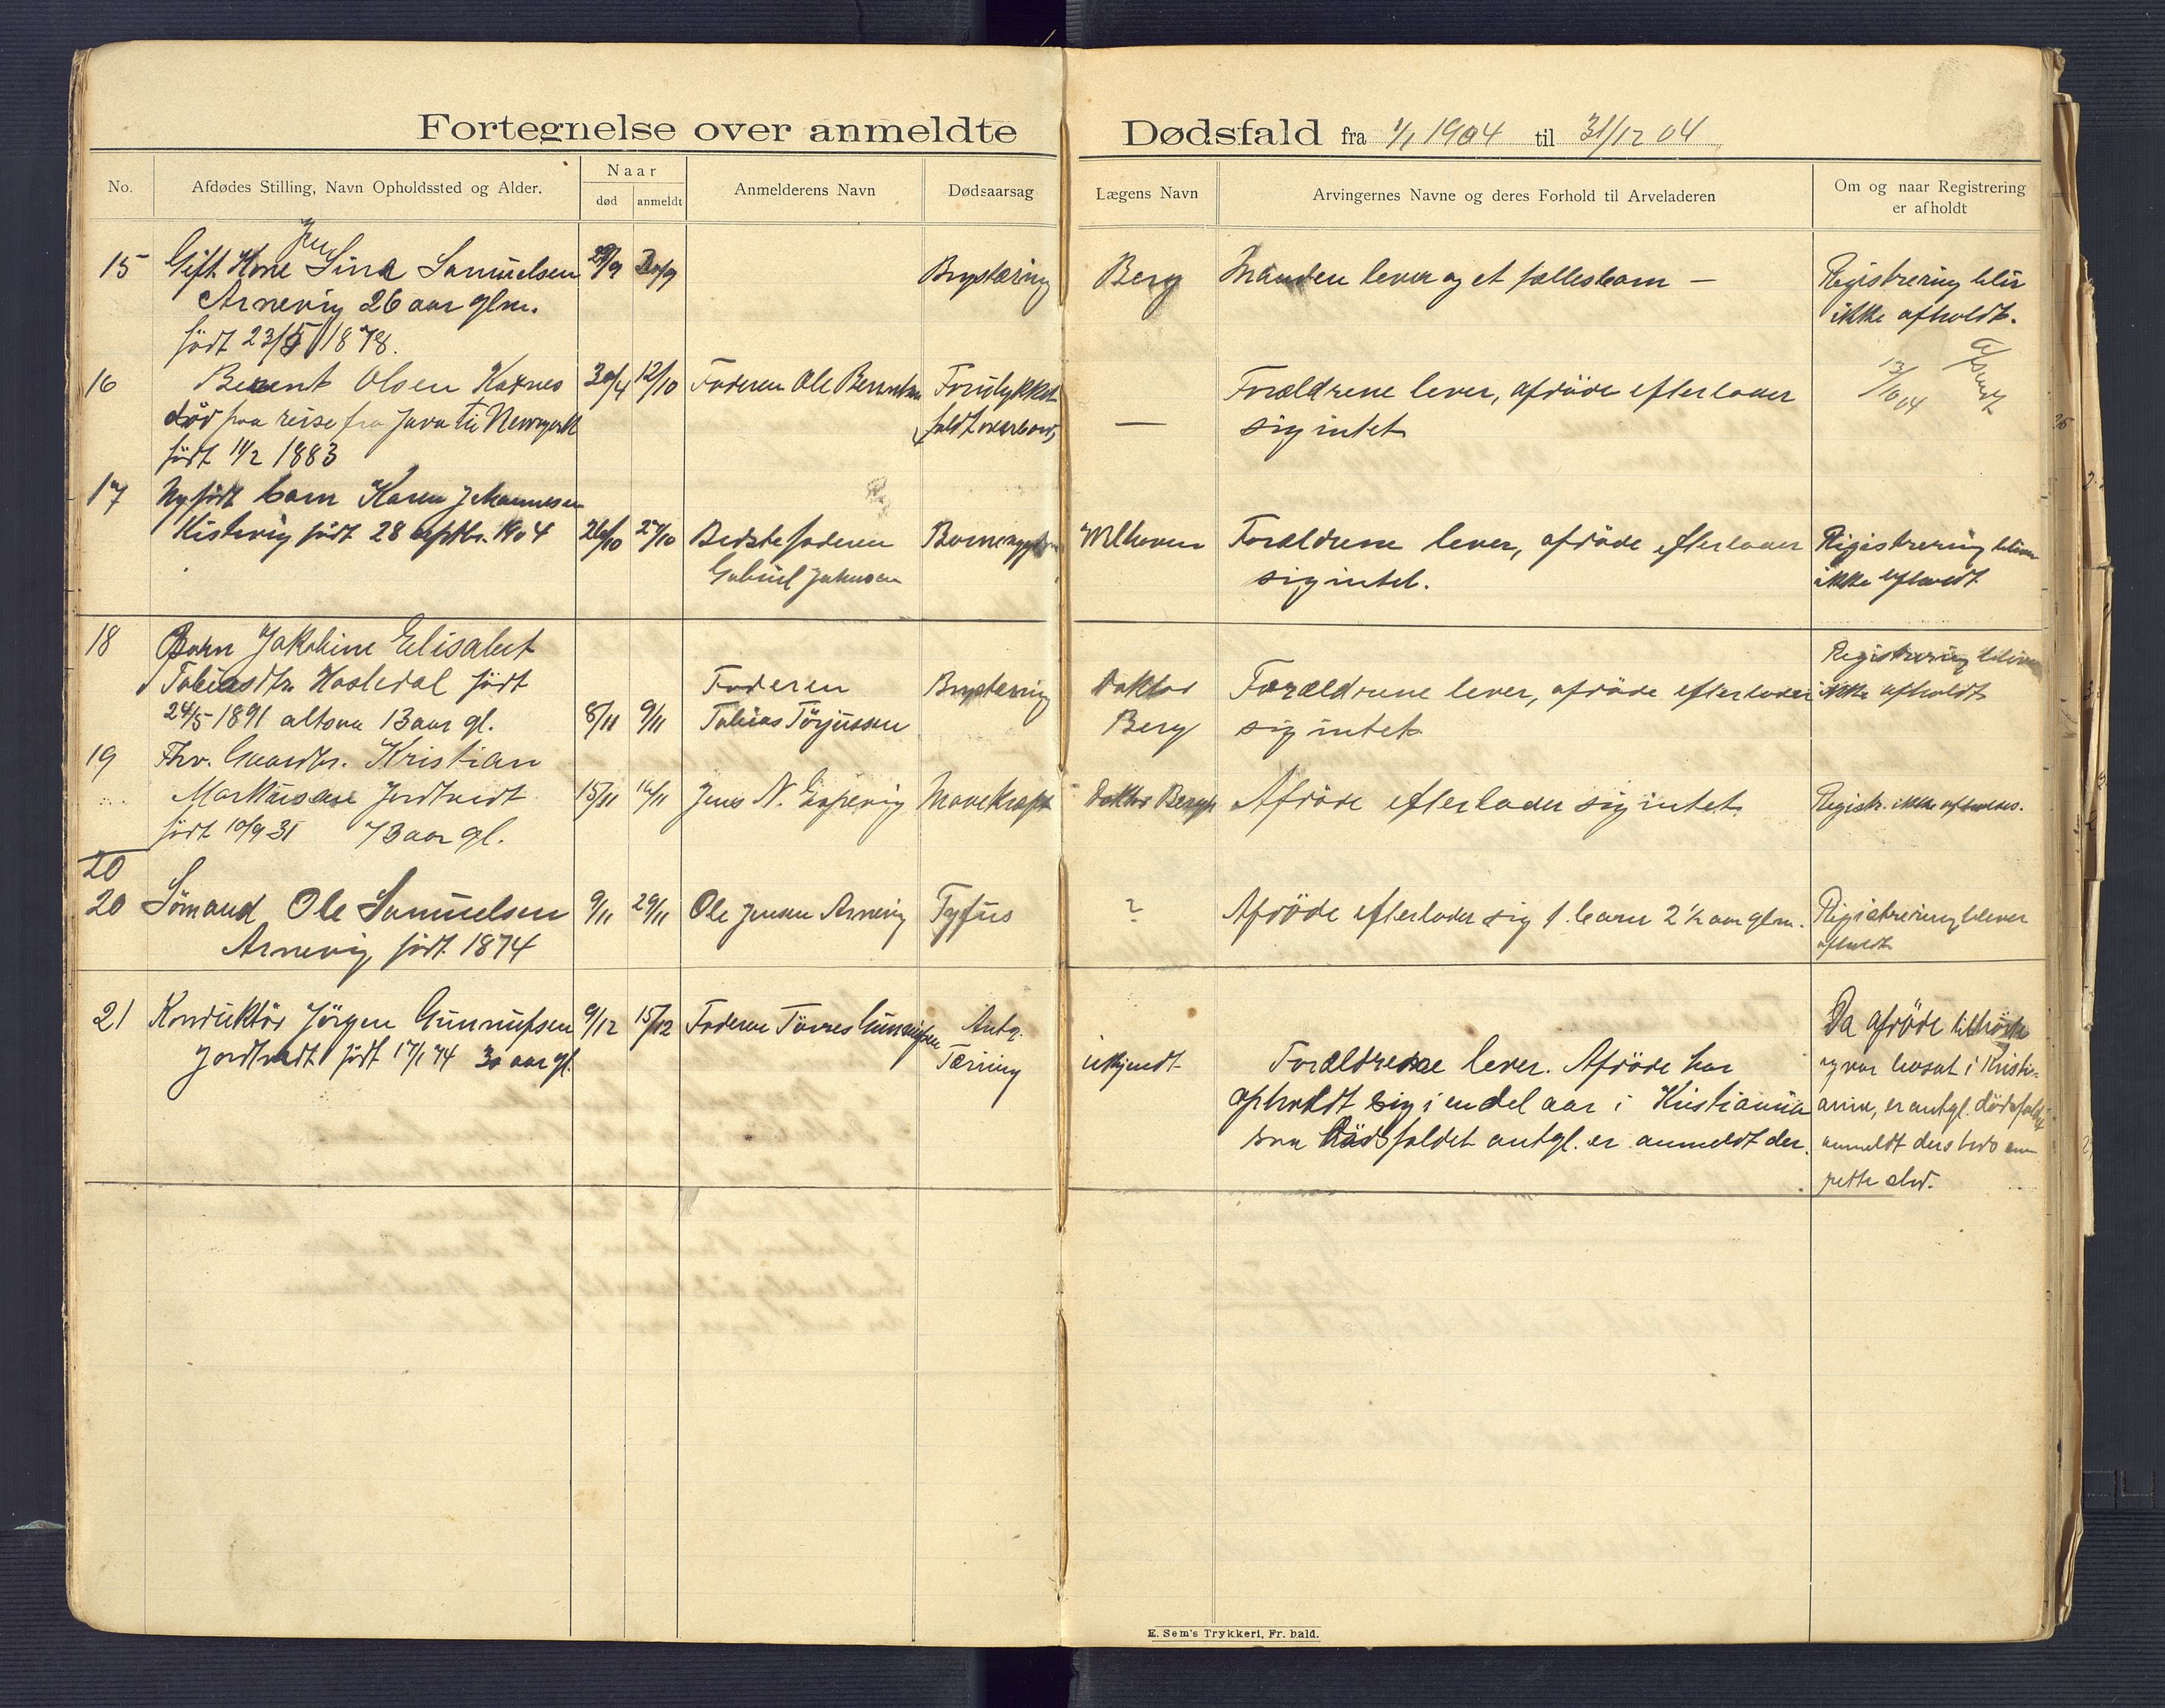 Fortegnelse over anmeldte Dødsfald fra 1/1 1904 til 31/12 04
No.
Afdødes Stilling, Navn Opholdssted og Alder.
Naar
død
anmeldt
Anmelderens Navn
Dødsaarsag
Lægens Navn
Arvingernes Navne og deres Forhold til Arveladeren
Om og naar Registrering
er afholdt
15 Gift Kone Sina Samuelsen 29/9 30/9 Brysttæring Berg Manden lever og et fællesbarn — Registrering blir
Arnevig 26 aar glm. ikke afholdt.
født 23/5 1878.
16 Berent Olsen Kaxnes 30/4 12/10 Faderen Ole Berentsen Forulykket Forældrene lever, afdøde efterlader 13/10 04
død paa reise fra Java til Newyork faldt overbord — sig intet
født 11/2 1883
17 Nyfødt barn Karen Johannesen
Kistevig født 28 septbr. 1904 26/10 27/10 Bedstefaderen Welhaven Forældrene lever, afdøde efterlader Registrering bliver
Gabriel Johnsen sig intet. ikke afholdt
18 Barn Jakobine Elisabet Registrering bliver
Tobiasdtr. Hasledal født Faderen Brysttæring Doktor Forældrene lever, afdøde efterlader ikke afholdt
24/5 1891 altsaa 13 aar gl. 8/11 9/11 Tobias Tørjussen Berg sig intet
19 Fhv. Gaardbr. Kristian
Markussen Jordtvedt 15/11 16/11 Jens N. Espevig Mavekræft Doktor Bergh Afdøde efterlader sig intet Registr. ikke afholdes.
født 10/9 31 73 aar gl.
20
20 Sømand Ole Samuelsen 9/11 29/11 Ole Jensen Arnevig Tyfus ? Afdøde efterlader sig 1 barn 2 1/2 aar glm. Registrering blever
Arnevig, født 1874 afholdt
21 Konduktør Jörgen Gunnufsen 9/12 15/12 Faderen Tørres Gunnufsen Antg. Da afdøde tilhørte
Jordtvedt født 17/1 74 30 aar gl. Tæring ukjendt Forældrene lever. Afdøde har og var bosat i Kristi-
opholdt sig i en del aar i Kristiania ania, er antgl. dødsfaldet
saa Dødsfaldet antgl. er anmeldt der. anmeldt dersteds som
rette sted.
E. Sem's Trykkeri, Fr. hald.